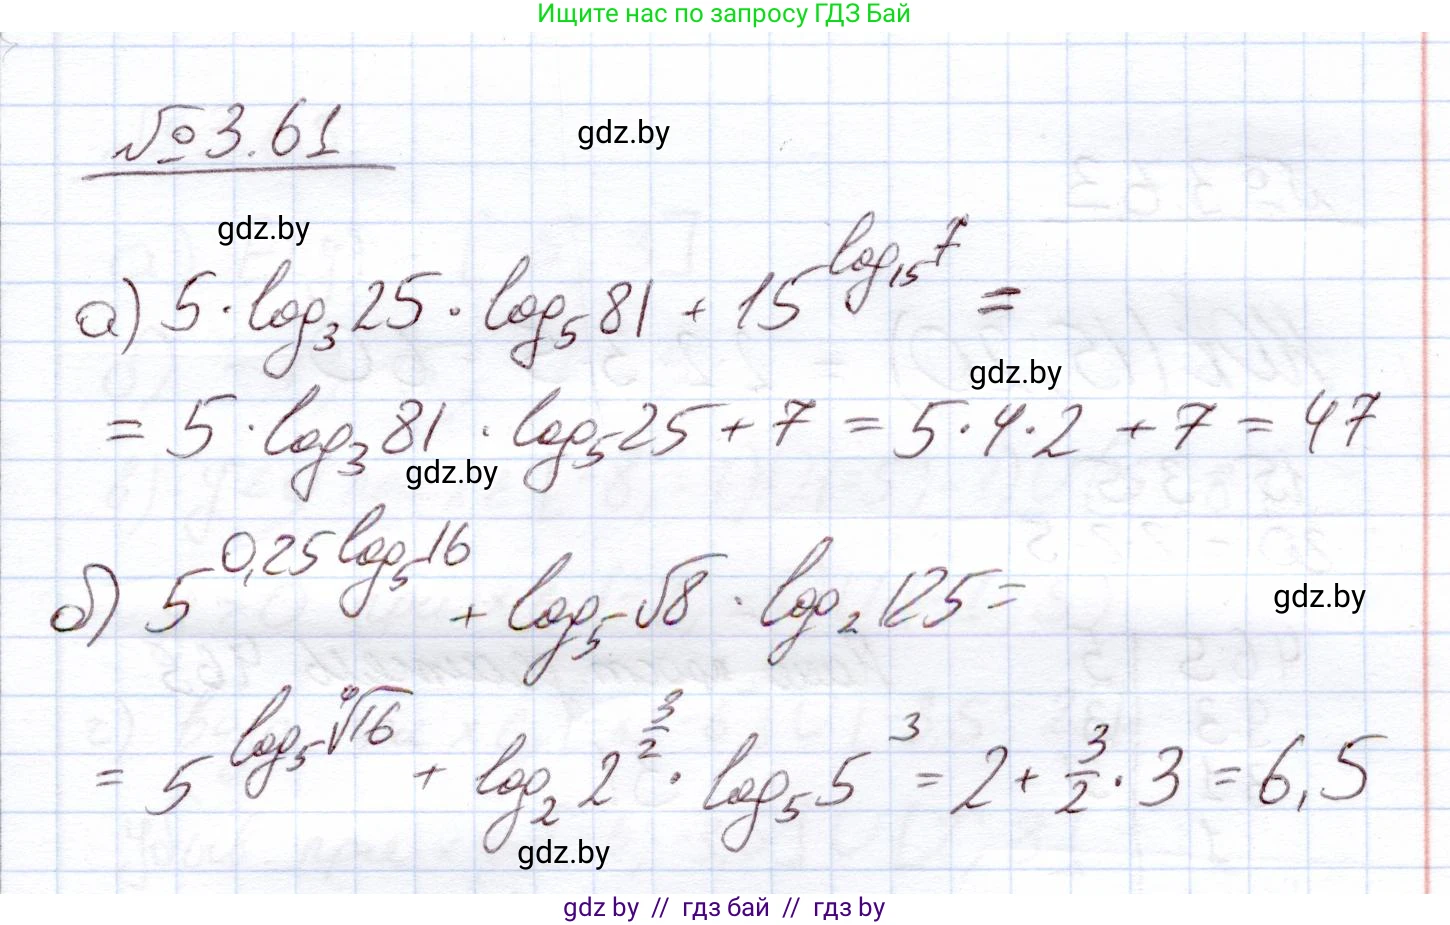 Ищите нас по запросу ГДЗ Бай
№ 3.61
gdz.by
gdz.by
а) 5 · log₃ 25 · log₅ 81 + 15^(log₁₅ 7) =
gdz.by
= 5 · log₃ 81 · log₅ 25 + 7 = 5 · 4 · 2 + 7 = 47
gdz.by
б) 5^(0,25 log₅ 16) + log₅ √8 · log₂ 125 =
gdz.by
= 5^(log₅ ⁴√16) + log₂ 2^(3/2) · log₅ 5³ = 2 + 3/2 · 3 = 6,5
gdz.by
gdz by // гдз бай // гдз by